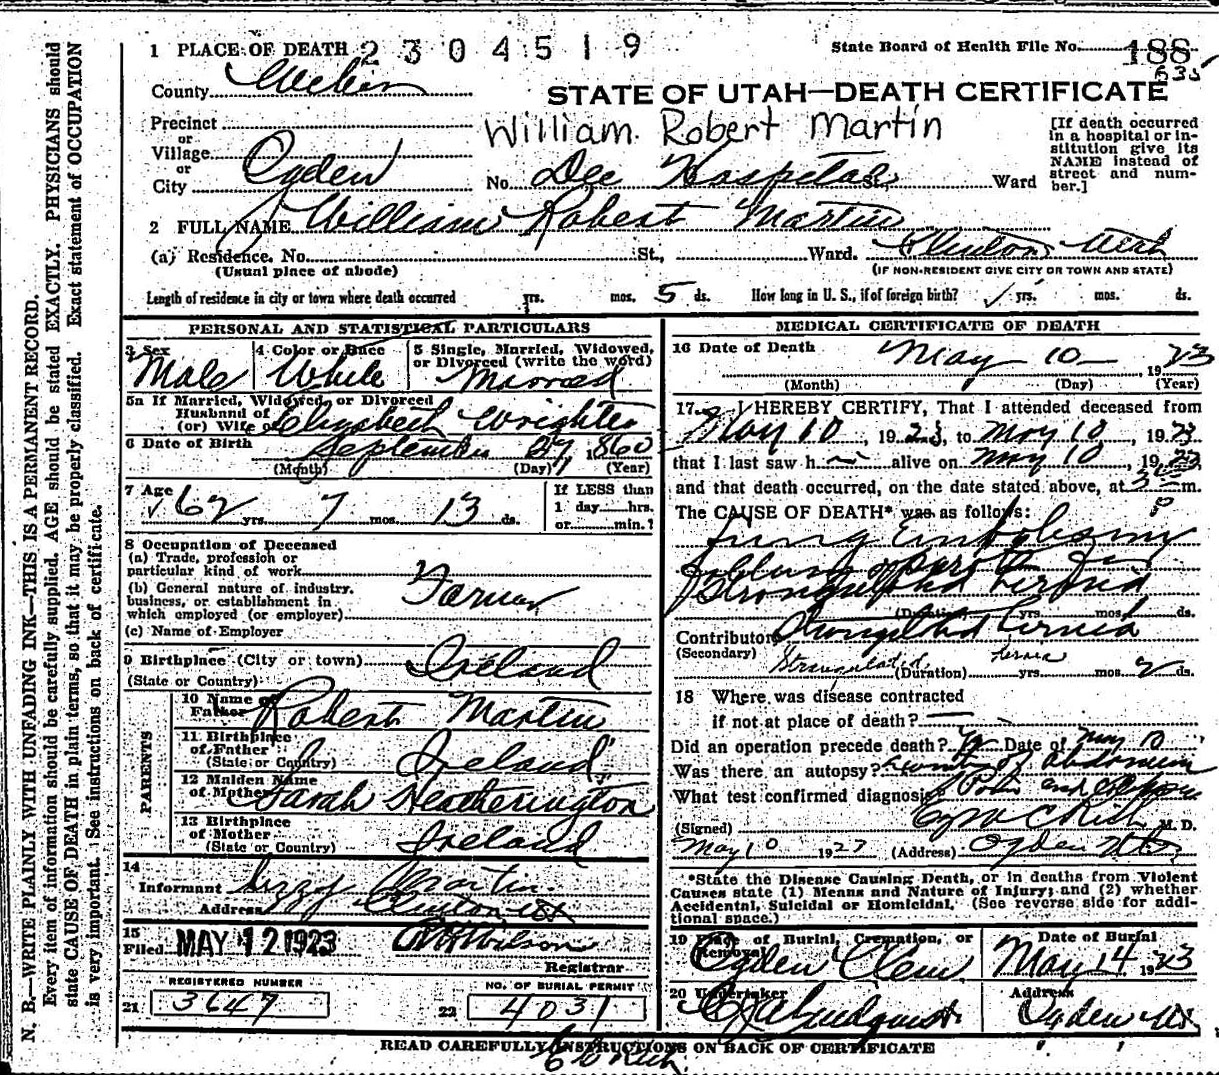 1 PLACE OF DEATH 2 3 0 4 5 1 9
State Board of Health File No. 188
635
County Weber
STATE OF UTAH—DEATH CERTIFICATE
Precinct
or
Village
or
City Ogden
William Robert Martin
No. Dee Hospital St. Ward
[If death occurred
in a hospital or in-
stitution give its
NAME instead of
street and num-
ber.]
2 FULL NAME William Robert Martin
(a) Residence. No. St., Ward. Clinton Utah
(Usual place of abode)
(IF NON-RESIDENT GIVE CITY OR TOWN AND STATE)
Length of residence in city or town where death occurred yrs. mos. 5 ds. How long in U. S., if of foreign birth? ✓ yrs. mos. ds.
PERSONAL AND STATISTICAL PARTICULARS
3 Sex
Male
4 Color or Race
White
5 Single, Married, Widowed,
or Divorced (write the word)
Married
5a If Married, Widowed, or Divorced
Husband of
(or) Wife of Elizabeth Wrighten
6 Date of Birth September 27, 1860
(Month) (Day) (Year)
7 Age
✓ 62 yrs. 7 mos. 13 ds.
If LESS than
1 day hrs.
or min.?
8 Occupation of Deceased
(a) Trade, profession or
particular kind of work
(b) General nature of industry,
business, or establishment in
which employed (or employer)
Farmer
(c) Name of Employer
9 Birthplace (City or town) Ireland
(State or Country)
PARENTS
10 Name of
Father Robert Martin
11 Birthplace
of Father
(State or Country) Ireland
12 Maiden Name
of Mother Sarah Heatherington
13 Birthplace
of Mother
(State or Country) Ireland
14
Informant Lizzy Martin
Address Clinton Ut
15
Filed MAY 12 1923 Wilson
Registrar
REGISTERED NUMBER
21 3647
NO. OF BURIAL PERMIT
22 4031
MEDICAL CERTIFICATE OF DEATH
16 Date of Death May 10 1923
(Month) (Day) (Year)
17 I HEREBY CERTIFY, That I attended deceased from
May 10, 1923, to May 10, 1923
that I last saw h im alive on May 10, 1923
and that death occurred, on the date stated above, at 3 P m.
The CAUSE OF DEATH* was as follows:
Lung Embolism
following operation for
Strangulated hernia
(Duration) yrs. mos. 1 ds.
Contributory Strangulated hernia
(Secondary) Strangulated hernia
(Duration) yrs. mos. 2 ds.
18 Where was disease contracted
if not at place of death?
Did an operation precede death? Yes Date of May 10
Was there an autopsy? of abdomen
What test confirmed diagnosis? and
(Signed) Ezra C Rich M. D.
May 10 1927 (Address) Ogden Utah
*State the Disease Causing Death, or in deaths from Violent
Causes state (1) Means and Nature of Injury; and (2) whether
Accidental, Suicidal or Homicidal. (See reverse side for addi-
tional space.)
19 Place of Burial, Cremation, or
Removal
Ogden Cem
Date of Burial
May 14 1923
20 Undertaker
Lindquist
Address
Ogden Ut
READ CAREFULLY INSTRUCTIONS ON BACK OF CERTIFICATE
E C Rich
N. B.—WRITE PLAINLY WITH UNFADING INK—THIS IS A PERMANENT RECORD.
Every item of information should be carefully supplied. AGE should be stated EXACTLY. PHYSICIANS should
state CAUSE OF DEATH in plain terms, so that it may be properly classified. Exact statement of OCCUPATION
is very important. See instructions on back of certificate.